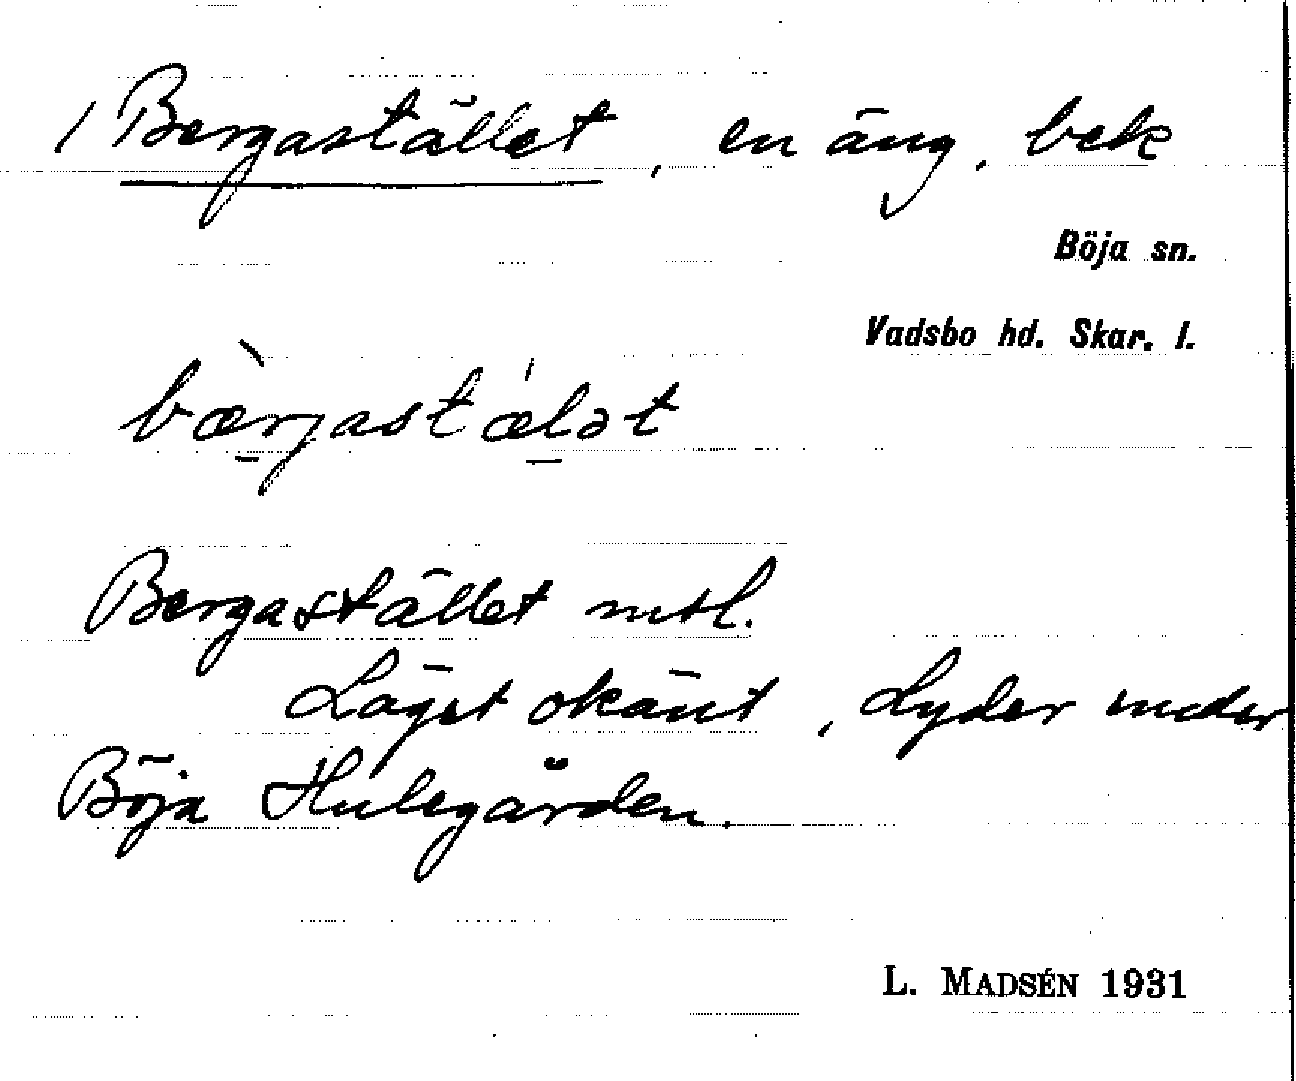 / Bergastället, en äng, bek
Böja sn.
Vadsbo hd. Skar. l.
bærjastælət
Bergastället mtl.
Läget okänt, Lyder under
Böja Hulegården.
L. MADSÉN 1931